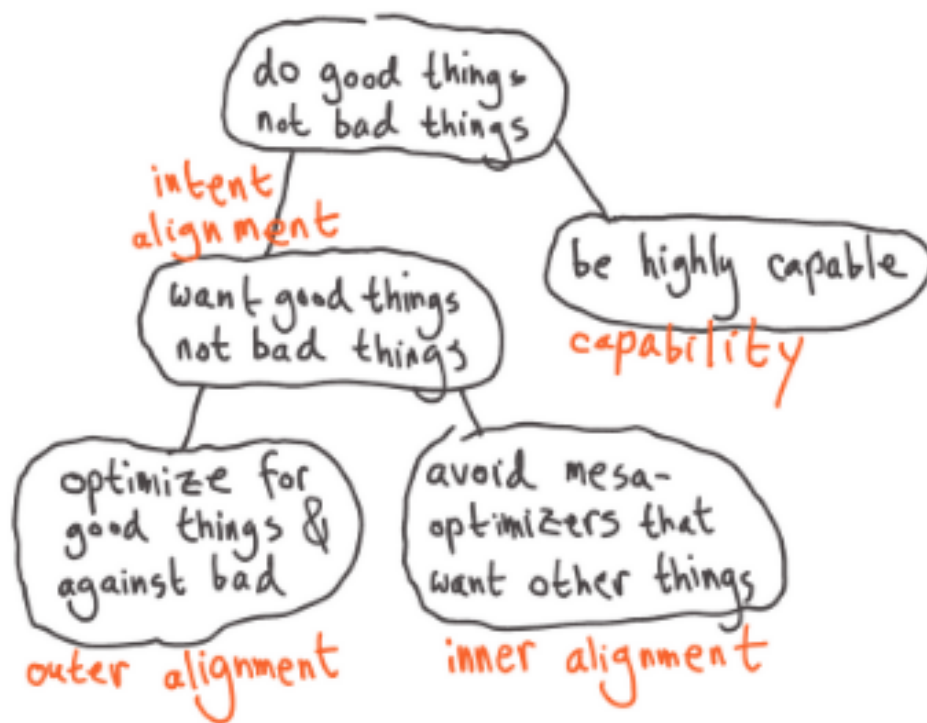 do good things
not bad things
intent
alignment
be highly capable
capability
want good things
not bad things
optimize for
good things &
against bad
outer alignment
avoid mesa-
optimizers that
want other things
inner alignment